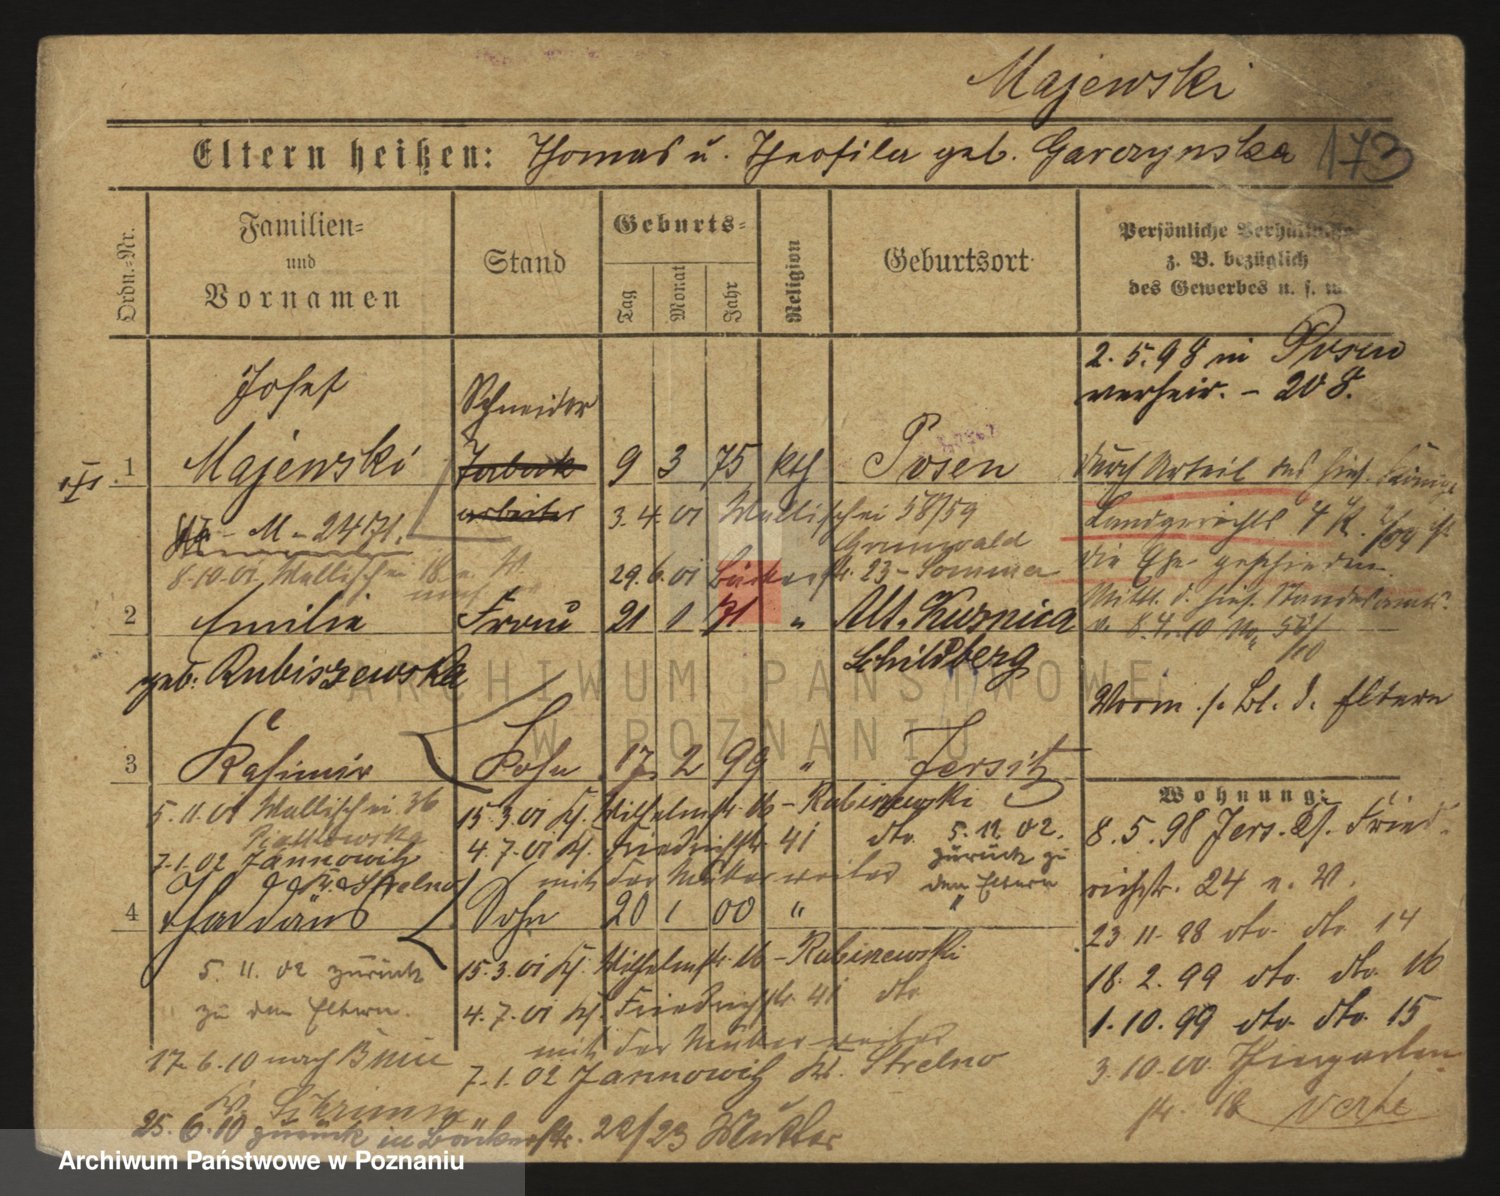 Majewski
Eltern heißen: Thomas u. Theofila geb. Garczynska 173
Ordn.-Nr.
Familien-
und
Vornamen
Stand
Geburts-
Tag
Monat
Jahr
Religion
Geburtsort
Persönliche Verhältnisse
z. B. bezüglich
des Gewerbes u. s. w.
Josef
Schneider
2.5.98 in Posen
verheir. - 208.
1 Majewski 9 3 75 kth Posen
durch Urteil des hies. Königl.
arbeiter 3.4.01 Wallischei 58/59
- M - 2471.
Landgerichts
Grunwald
8.10.01 Wallischei 18
29.6.01 Bäckerstr. 23 - Sommer
die Ehe geschieden.
2 Emilie Frau 21 1 71 " Alt. Kuznica
Mittl. d. hies. Standesamts
v. 8.4.10
geb. Rubiszewska
Schildberg
Vorm. s. Bl. d. Eltern
3 Kasimir Sohn 17. 2 99 " Jersitz
Wohnung:
5.11.01 Wallischei 36
15.3.01 Wilhelmstr. 16 - Rubiszewski
8.5.98 Jers. Gr. Fried-
7.1.02 Jannowitz
4.7.01 Friedrichstr. 41 dto. 5.11.02.
zurück zu
den Eltern
mit der Mutter weiter
Kr. Strelno
richstr. 24 n. V.
4 Thaddäus Sohn 20 1 00 " "
23.11.98 dto. dto 14
5.11.02 zurück
zu den Eltern.
15.3.01 Wilhelmstr. 16 - Rubiszewski
18.2.99 dto. dto. 16
4.7.01 Friedrichstr. 41 dto
1.10.99 dto. dto. 15
mit der Mutter weiter
17.6.10 nach Bnin
7.1.02 Jannowitz Kr. Strelno
3.10.00 Thiergarten-
str. 12 verte
Kr. Schrimm
25.6.10 zurück in Bäckerstr. 22/23 Mutter
ARCHIWUM PAŃSTWOWE
W POZNANIU
Archiwum Państwowe w Poznaniu